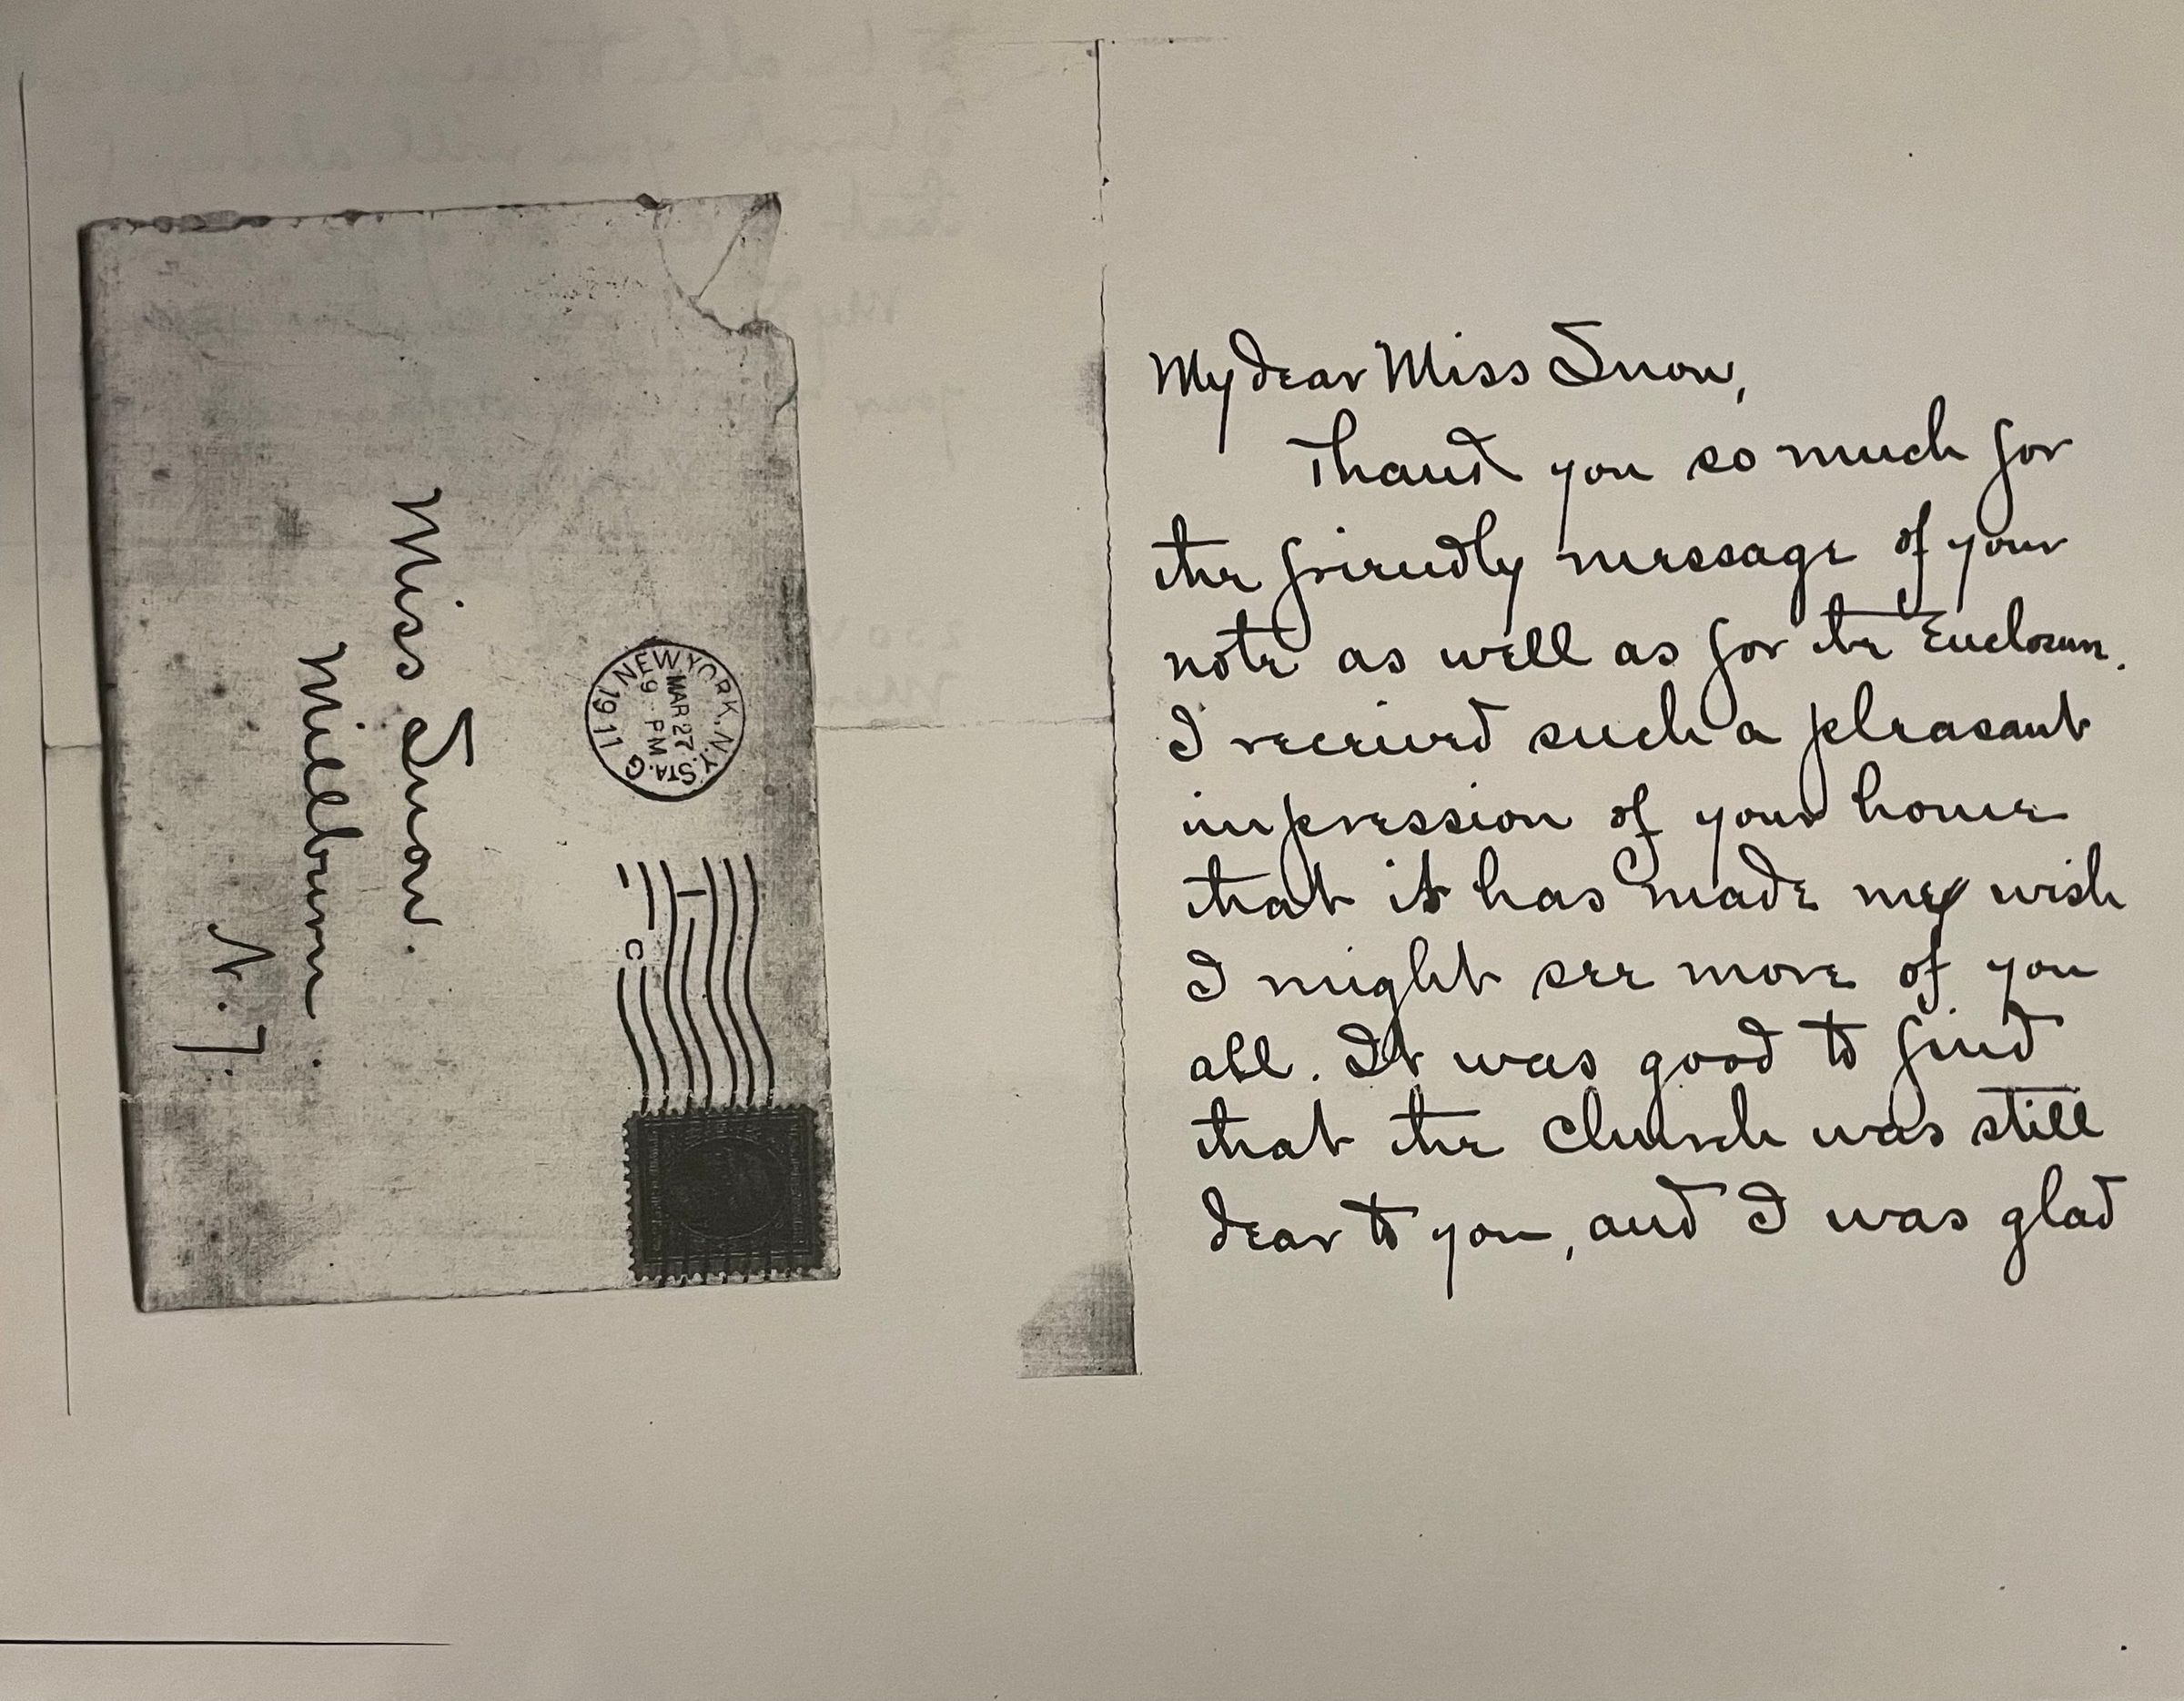 Miss Snow.
Millburn.
N. J.
NEW YORK, N.Y. STA. G
MAR 27
9 PM
1911
My dear Miss Snow,
Thank you so much for
the friendly message of your
note as well as for the Enclosure.
I received such a pleasant
impression of your home
that it has made me wish
I might see more of you
all. It was good to find
that the Church was still
dear to you, and I was glad